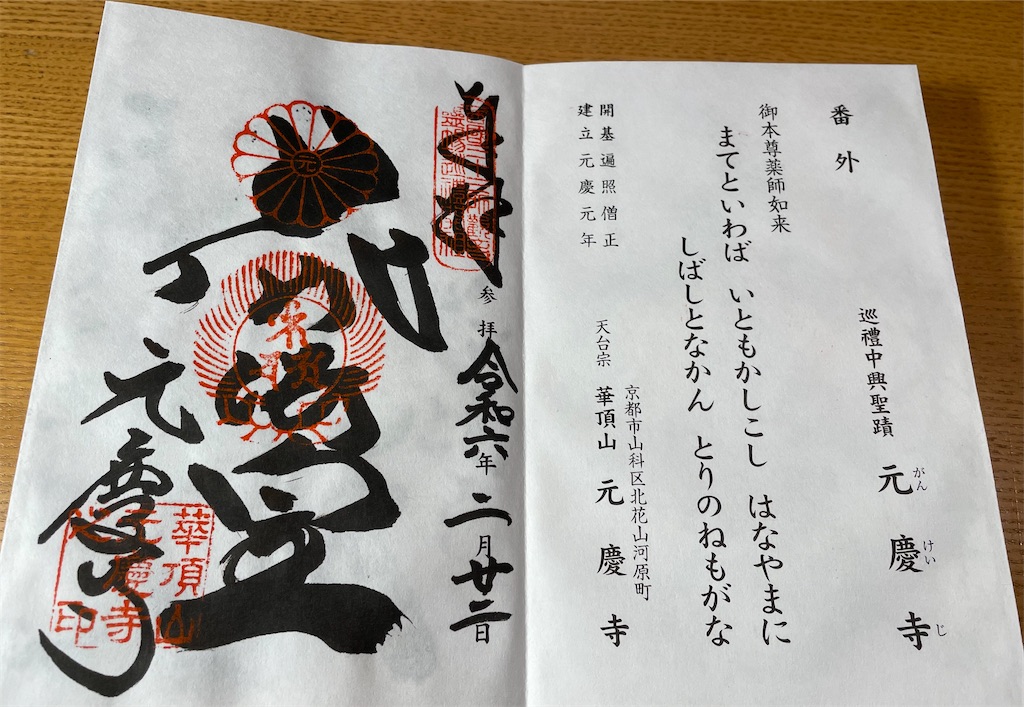 番外
巡禮中興聖蹟 元慶寺
がんけいじ
御本尊薬師如来
まてといわば いともかしこし はなやまに
しばしとなかん とりのねもがな
開基遍照僧正
建立元慶元年
京都市山科区北花山河原町
天台宗 華頂山 元慶寺
参拝 令和六年二月廿二日
元慶寺
華頂山
元慶寺印